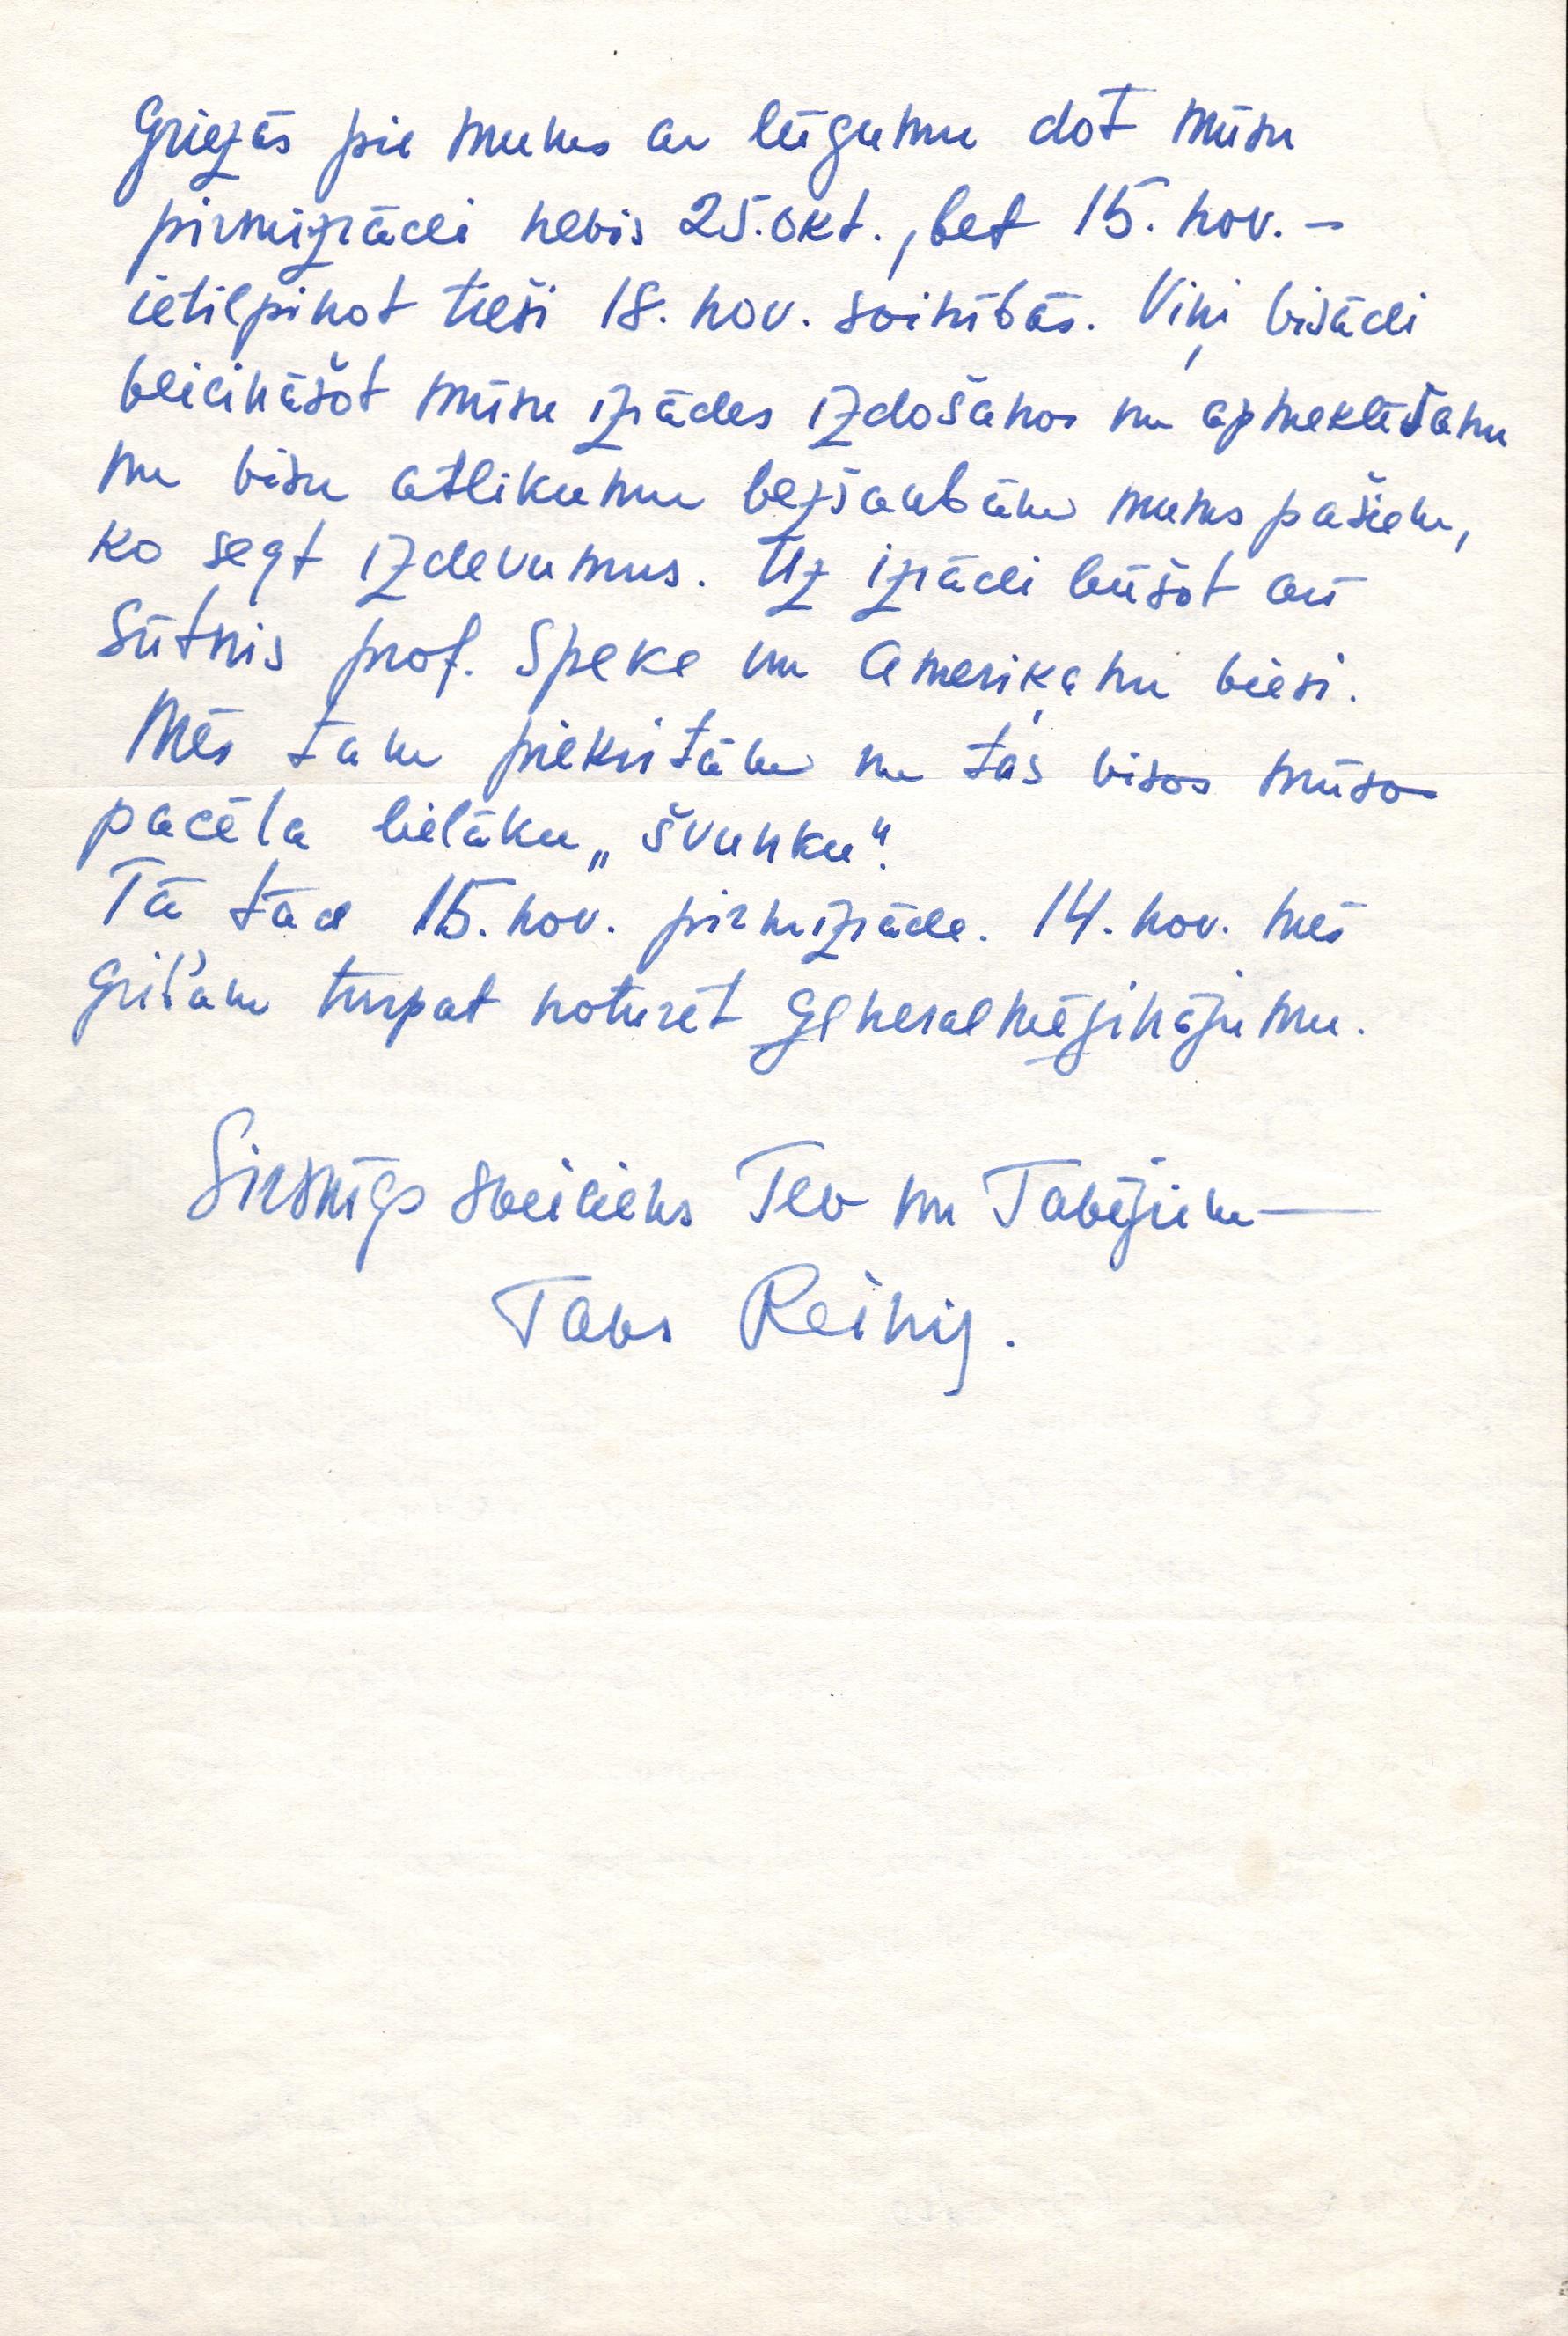 Griezās pie mums ar lūgumu dot mūsu
pirmizrādi nevis 25. okt., bet 15. nov. –
ietilpinot tieši 18. nov. svinībās. Viņi visādi
veicināšot mūsu izrādes izdošanos un apmeklēšanu
un visu atlikumu bezsaubām mums pašiem,
ko segt izdevumus. Uz izrādi būšot arī
Sūtnis prof. Speke un Amerikaņu viesi.
Mēs tam piekritām un tas visos mūsos
pacēla lielāku „švunku".
Tā tad 15. nov. pirmizrāde. 14. nov. mēs
gribam turpat noturēt Generalmēģinājumu.
Sirsnīgs sveiciens Tev un Tavējiem —
Tavs Reinis.